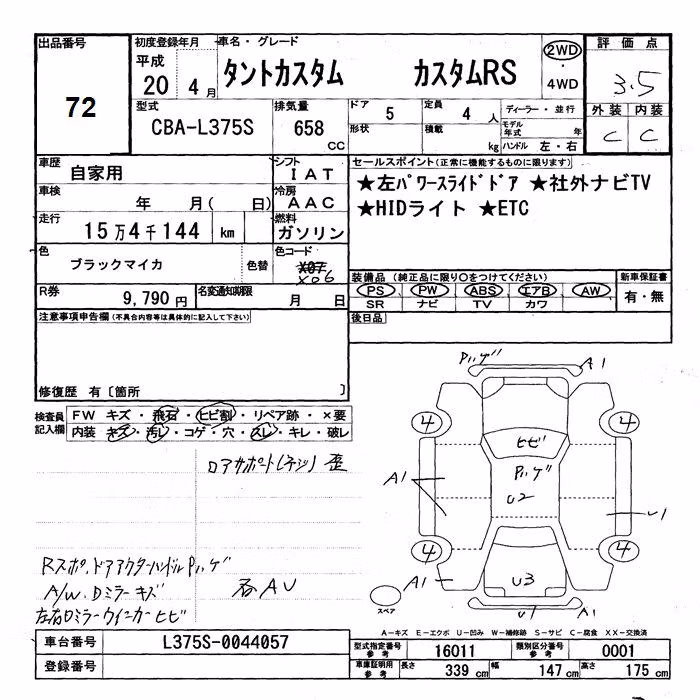 出品番号 初度登録年月 車名・グレード 2WD 評価点
72 平成 20 4月 タントカスタム カスタムRS ・ 4WD 3.5
型式 排気量 ドア 5 定員 4人 ディーラー・並行 外装 内装
CBA-L375S 658 CC 形状 積載 kg モデル年式 年 C C
ハンドル 左・右
車歴 自家用 シフト IAT セールスポイント(正常に機能するものに限ります)
車検 年 月( 日) 冷房 AAC ★左パワースライドドア ★社外ナビTV
走行 15万4千144 km 燃料 ガソリン ★HIDライト ★ETC
色 ブラックマイカ 色替 色コード X07 X06
装備品(純正品に限り○をつけてください) 新車保証書
R券 9,790円 名変通知期限 月 日 PS PW ABS エアB AW 有・無
SR ナビ TV カワ
注意事項申告欄(不具合内容等は具体的に記入して下さい) 後日品
修復歴 有〔箇所 〕
検査員記入欄 FW キズ・飛石・ヒビ割・リペア跡・×要
内装 キズ・汚レ・コゲ・穴・スレ・キレ・破レ
ロアサポート(ネジ)歪
Rスポ、ドアアウターハンドルPハゲ
A/W、Dミラーキズ
左右Dミラーウインカーヒビ
各AU
Pハゲ A1
4 4
ヒビ
Pハゲ
A1 U2
U1
4 4
A1 U3
U1 A1
スペア
A-キズ E-エクボ U-凹み W-補修跡 S-サビ C-腐食 XX-交換済
車台番号 L375S-0044057 型式指定番号 参考 16011 類別区分番号 参考 0001
登録番号 車庫証明用 参考 長さ 339cm 幅 147cm 高さ 175cm